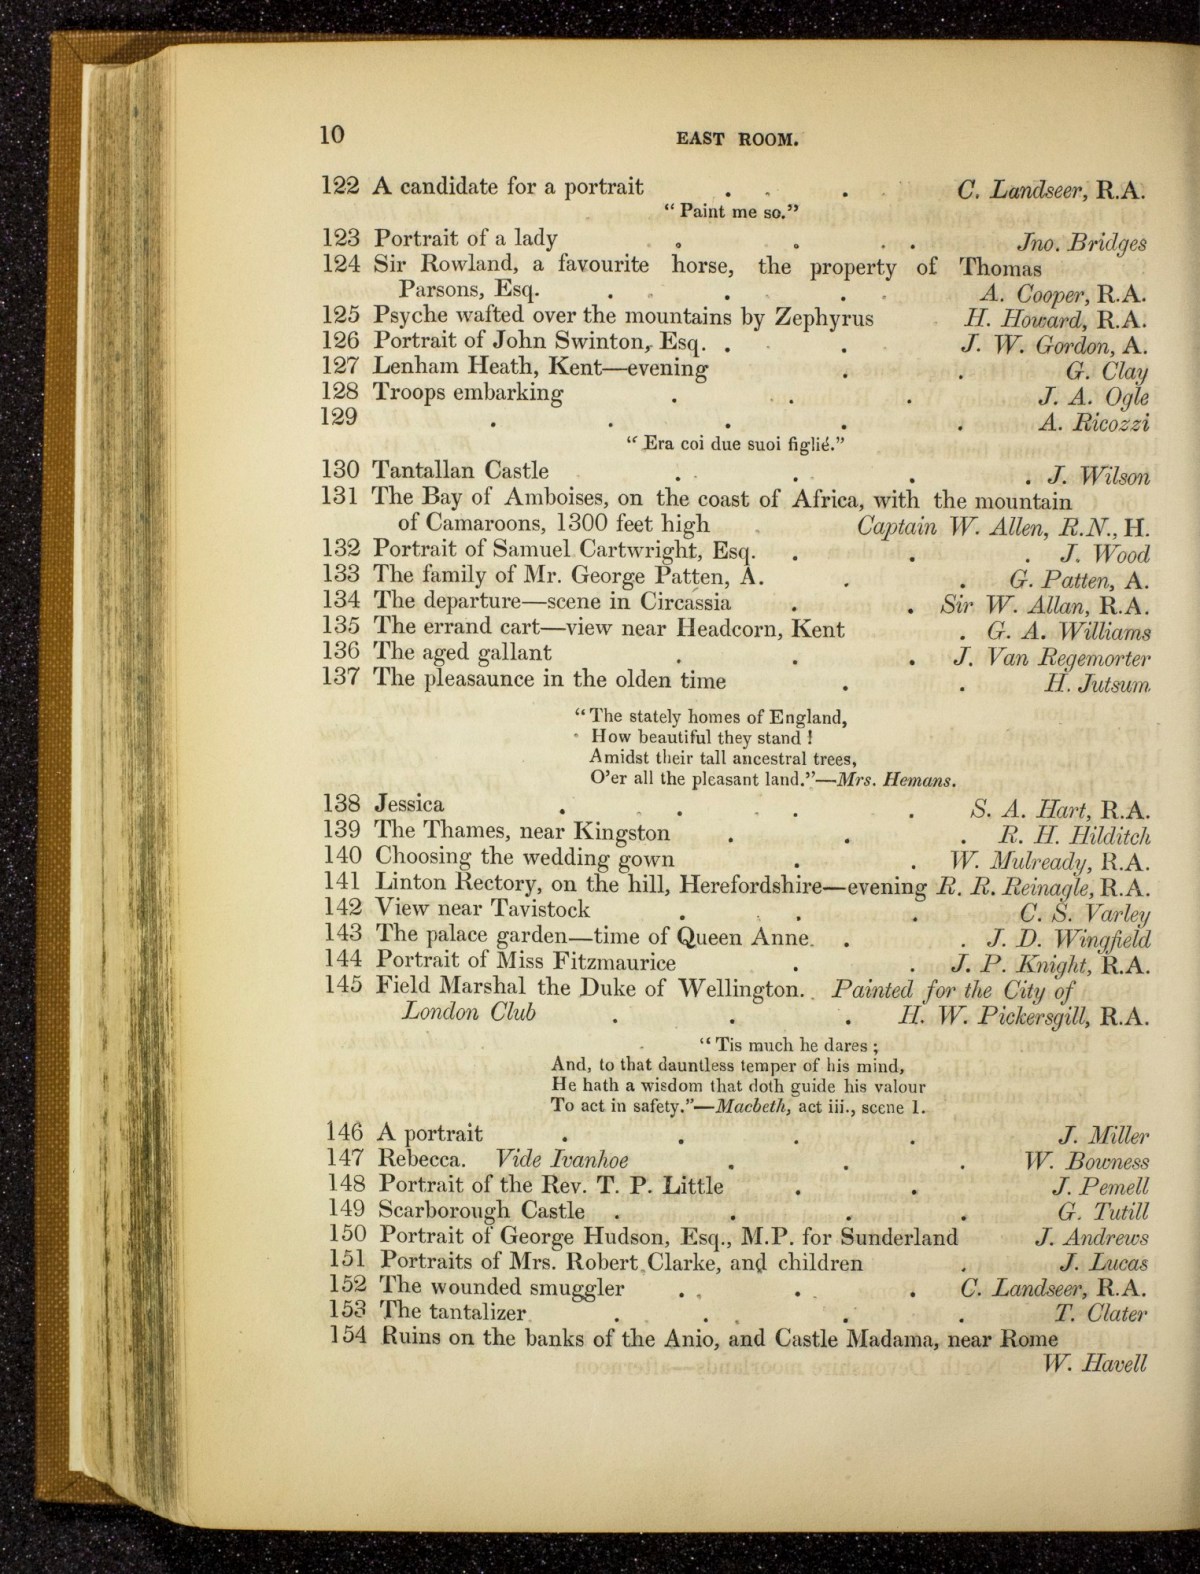 10 EAST ROOM.
122 A candidate for a portrait . . C. Landseer, R.A.
"Paint me so."
123 Portrait of a lady . . . . Jno. Bridges
124 Sir Rowland, a favourite horse, the property of Thomas
Parsons, Esq. . . . A. Cooper, R.A.
125 Psyche wafted over the mountains by Zephyrus H. Howard, R.A.
126 Portrait of John Swinton, Esq. . . J. W. Gordon, A.
127 Lenham Heath, Kent—evening . . G. Clay
128 Troops embarking . . . J. A. Ogle
129 . . . . . A. Ricozzi
"Era coi due suoi figlié."
130 Tantallan Castle . . . . J. Wilson
131 The Bay of Amboises, on the coast of Africa, with the mountain
of Camaroons, 1300 feet high Captain W. Allen, R.N., H.
132 Portrait of Samuel Cartwright, Esq. . . . J. Wood
133 The family of Mr. George Patten, A. . . G. Patten, A.
134 The departure—scene in Circassia . . Sir W. Allan, R.A.
135 The errand cart—view near Headcorn, Kent . G. A. Williams
136 The aged gallant . . . J. Van Regemorter
137 The pleasaunce in the olden time . . H. Jutsum
"The stately homes of England,
How beautiful they stand!
Amidst their tall ancestral trees,
O'er all the pleasant land."—Mrs. Hemans.
138 Jessica . . . . S. A. Hart, R.A.
139 The Thames, near Kingston . . . R. H. Hilditch
140 Choosing the wedding gown . . W. Mulready, R.A.
141 Linton Rectory, on the hill, Herefordshire—evening R. R. Reinagle, R.A.
142 View near Tavistock . . . C. S. Varley
143 The palace garden—time of Queen Anne. . . J. D. Wingfield
144 Portrait of Miss Fitzmaurice . . J. P. Knight, R.A.
145 Field Marshal the Duke of Wellington. Painted for the City of
London Club . . . H. W. Pickersgill, R.A.
"Tis much he dares;
And, to that dauntless temper of his mind,
He hath a wisdom that doth guide his valour
To act in safety."—Macbeth, act iii., scene 1.
146 A portrait . . . . J. Miller
147 Rebecca. Vide Ivanhoe . . . W. Bowness
148 Portrait of the Rev. T. P. Little . . J. Pemell
149 Scarborough Castle . . . . G. Tutill
150 Portrait of George Hudson, Esq., M.P. for Sunderland J. Andrews
151 Portraits of Mrs. Robert Clarke, and children . J. Lucas
152 The wounded smuggler . . . C. Landseer, R.A.
153 The tantalizer . . . . T. Clater
154 Ruins on the banks of the Anio, and Castle Madama, near Rome
W. Havell